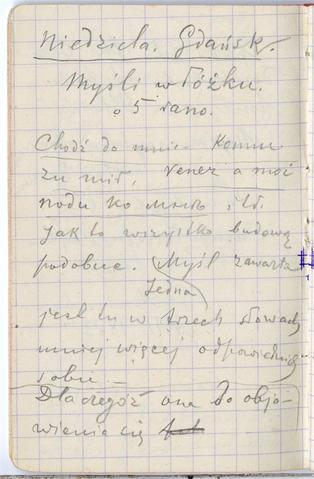 Niedziela. Gdańsk.
Myśli w łóżku.
o 5 rano.
Chodź do mnie - Komm
zu mir, venez a moi
поди ко мнѣ, itd.
jak to wszystko budową
podobne. (Myśl zawarta
jedna
jest tu w trzech słowach
mniej więcej odpowiednich
sobie -
Dlaczegóż ona do obja-
wienia się